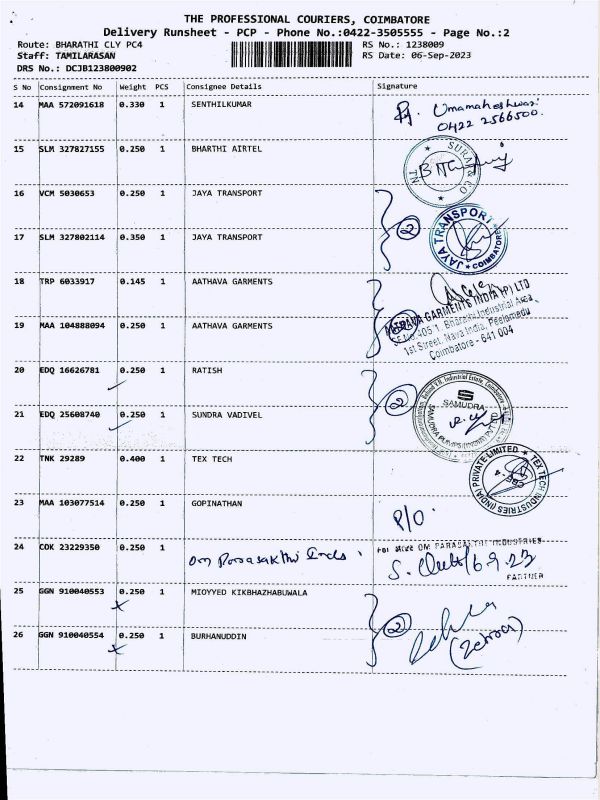 THE PROFESSIONAL COURIERS, COIMBATORE
Delivery Runsheet - PCP - Phone No.:0422-3505555 - Page No.:2
Route: BHARATHI CLY PC4 RS No.: 1238009
Staff: TAMILARASAN RS Date: 06-Sep-2023
DRS No.: DCJB123800902
S No Consignment No Weight PCS Consignee Details Signature
14 MAA 572091618 0.330 1 SENTHILKUMAR
Umamaheshwari
0422 2566500.
15 SLM 327827155 0.250 1 BHARTHI AIRTEL
SURAJ & CO
TN
16 VCM 5030653 0.250 1 JAYA TRANSPORT
2
JAYA TRANSPORT
COIMBATORE
17 SLM 327802114 0.350 1 JAYA TRANSPORT
18 TRP 6033917 0.145 1 AATHAVA GARMENTS
GARMENTS INDIA (P) LTD
405 1, Bharathi Industrial Area,
1st Street, Nava India, Peelamedu
Coimbatore - 641 004
19 MAA 104888094 0.250 1 AATHAVA GARMENTS
20 EDQ 16626781 0.250 1 RATISH
2
SAMUDRA
21 EDQ 25608740 0.250 1 SUNDRA VADIVEL
22 TNK 29289 0.400 1 TEX TECH
TEX TECH INDUSTRIES (INDIA) PRIVATE LIMITED
CBE-4
23 MAA 103077514 0.250 1 GOPINATHAN
P/O
24 COK 23229350 0.250 1
Om Parasakthi Inds.
OM PARASAKTHI INDUSTRIES
6 9 23
PARTNER
25 GGN 910040553 0.250 1 MIOYYED KIKBHAZHABUWALA
2
26 GGN 910040554 0.250 1 BURHANUDDIN